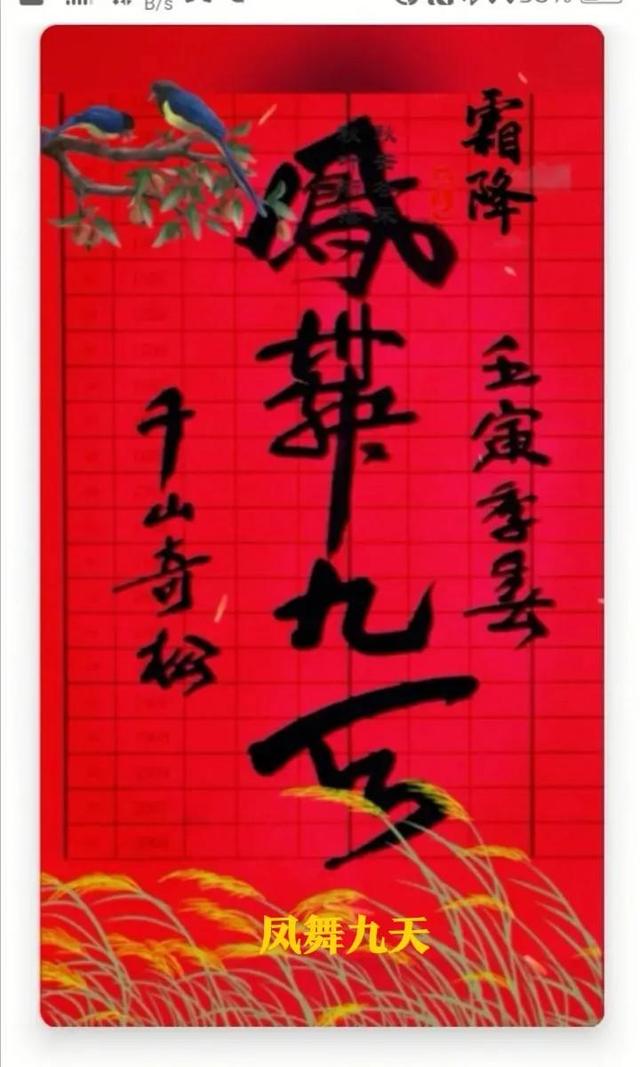 B/s
霜降
壬寅季
鳳舞九天
千山奇松
凤舞九天